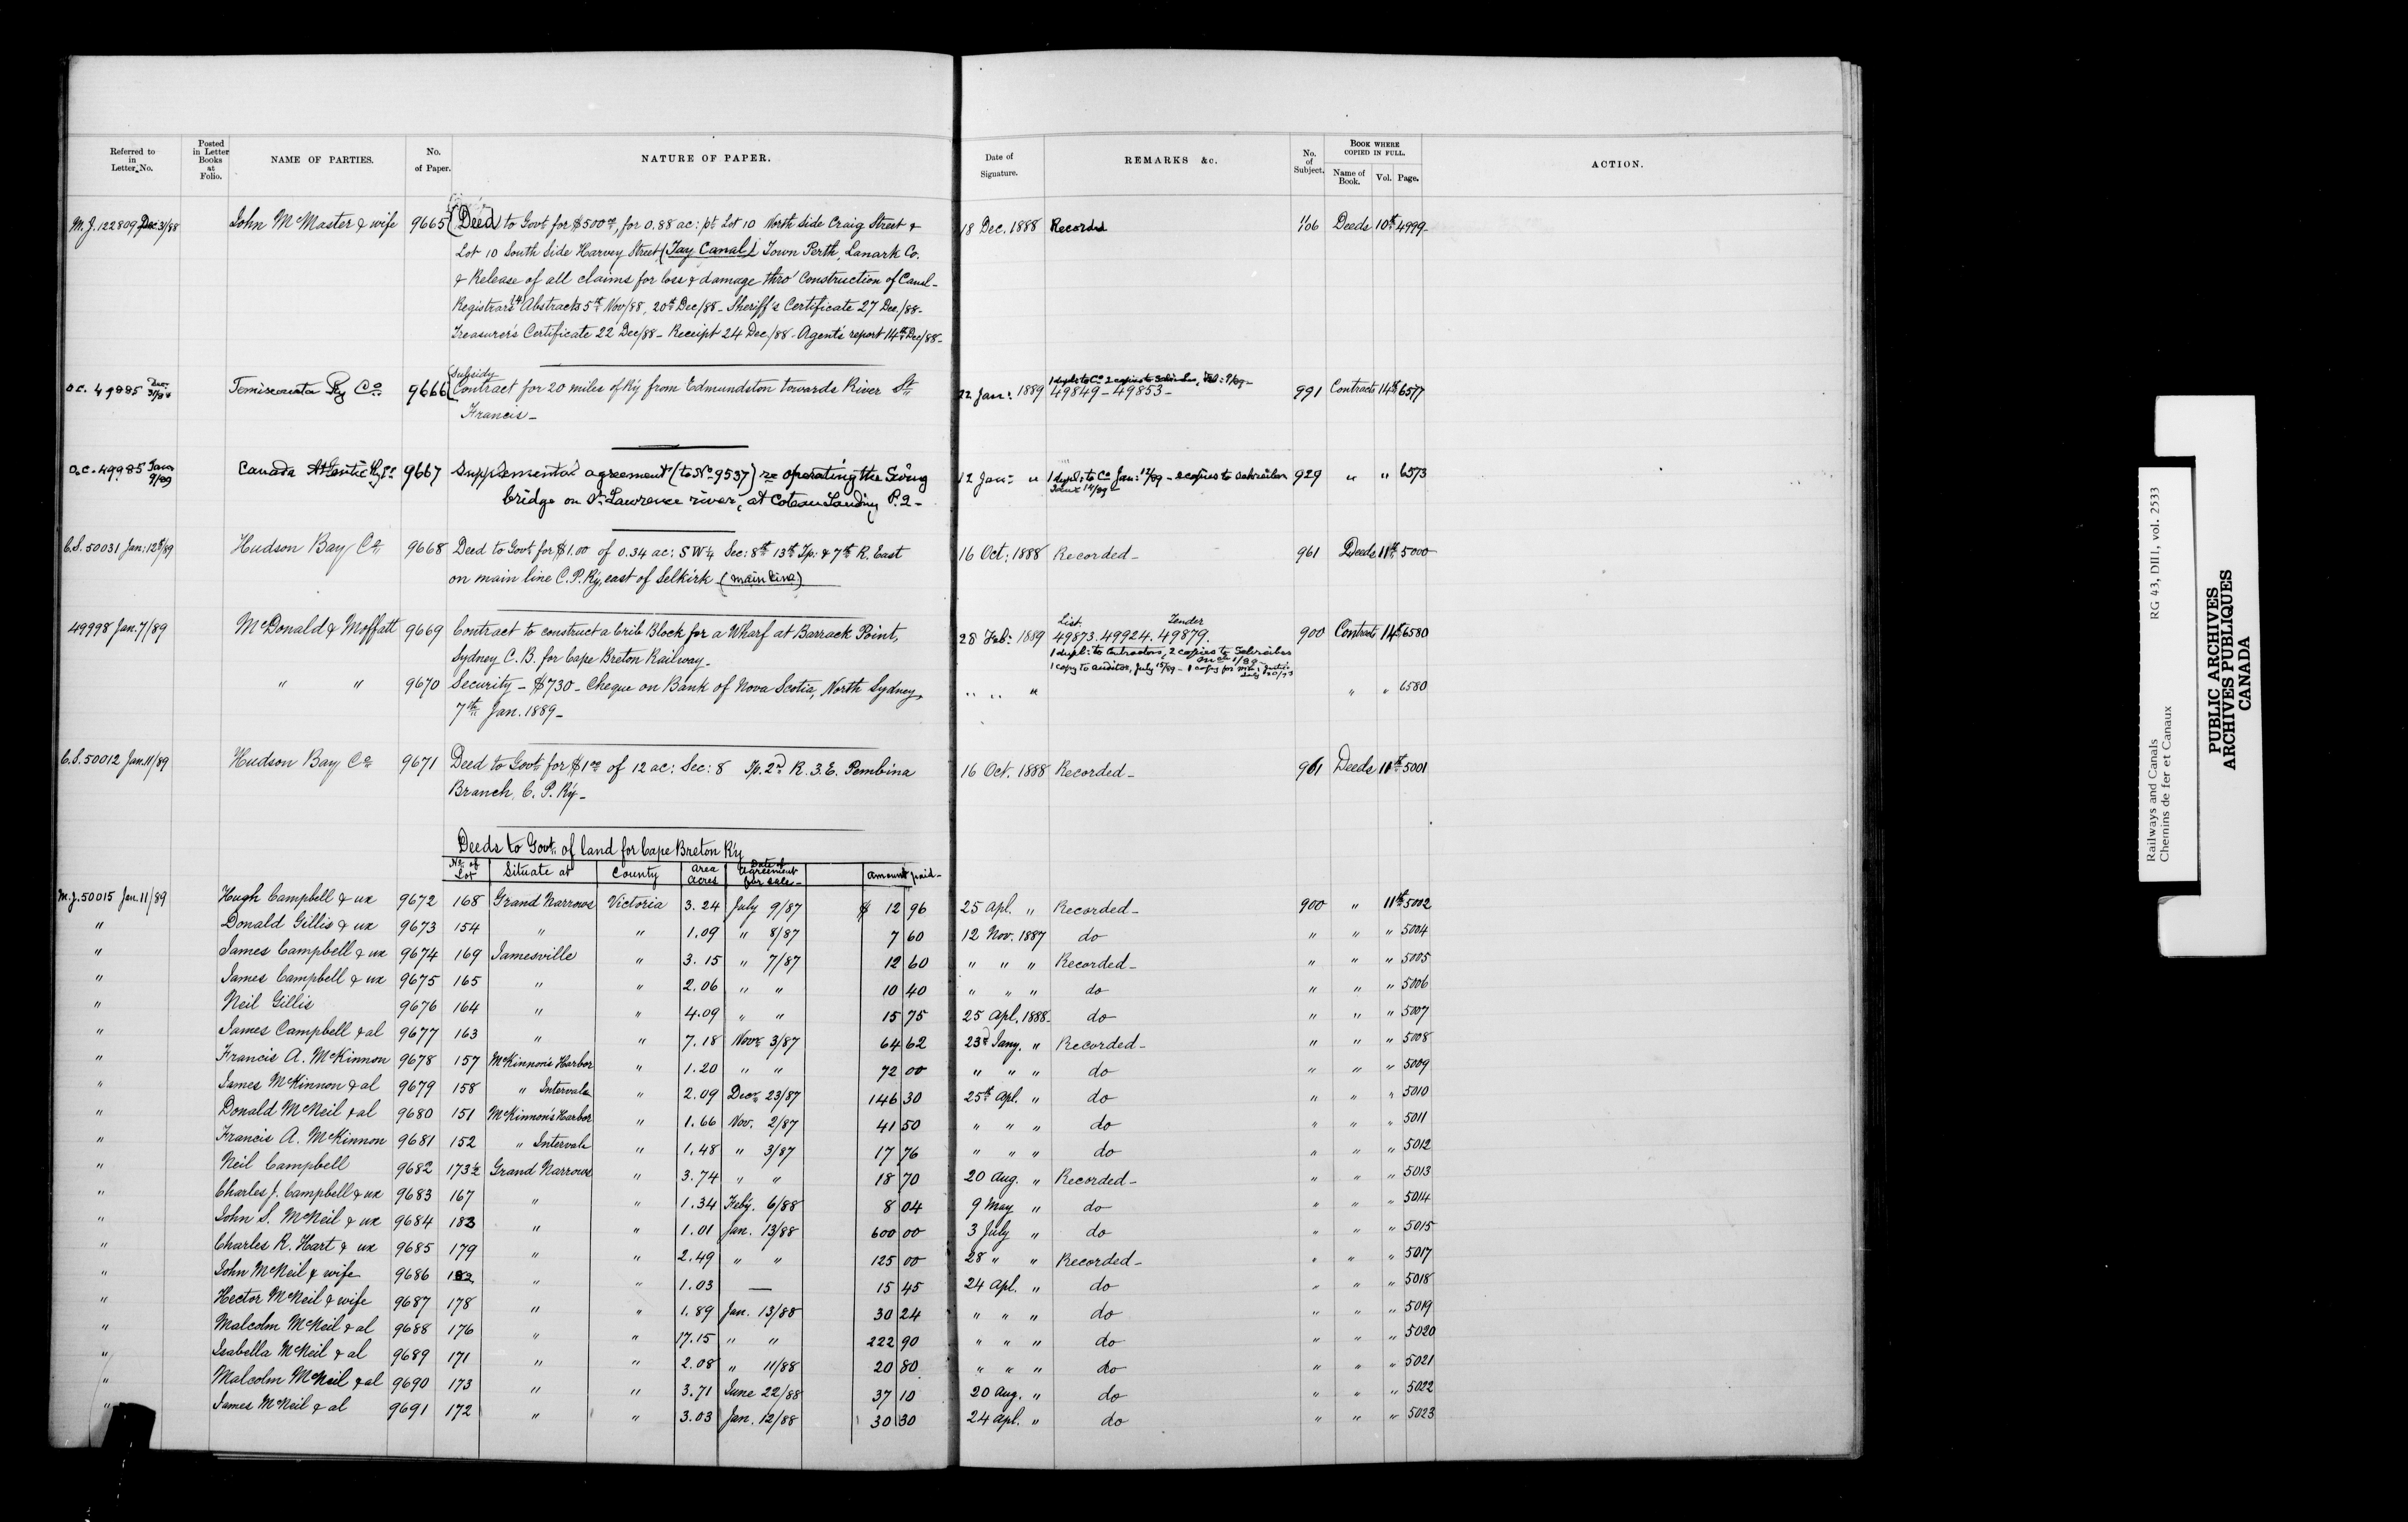 Referred to in Letter No. | Posted in Letter Books at Folio. | NAME OF PARTIES. | No. of Paper. | NATURE OF PAPER. | Date of Signature. | REMARKS &c. | No. of Subject. | BOOK WHERE COPIED IN FULL. Name of Book. Vol. Page. | ACTION.
M.J. 122809 Dec 31/88 John McMaster & wife 9665 Deed to Govt for $500.00, for 0.88 ac: pt Lot 10 North Side Craig Street & 18 Dec. 1888 Recorded 1106 Deeds 10th 4999
Lot 10 South Side Harvey Street (Tay Canal) Town Perth, Lanark Co.
& Release of all claims for loss & damage thro' Construction of Canal-
Registrars Abstracts 5th Nov/88, 20th Dec/88 - Sheriff's Certificate 27 Dec/88-
Treasurer's Certificate 22 Dec/88 - Receipt 24 Dec/88 - Agent's report 14th Dec/88-
Subsidy
O.C. 49885 Dec 31/88 Temiscouata Ry Co. 9666 Contract for 20 miles of Ry from Edmundston towards River St 22 Jan: 1889 49849 - 49853 - 991 Contracts 14th 6577
Francis-
O.C. 49985 Jan 9/89 Canada Atlantic Ry Co 9667 Supplemental agreement (to No 9537) re operating the Swing 12 Jan: " 1 dupl: to Co Jan: 12/89 - 2 copies to Schreiber 929 " " 6573
Jan: 14/89
bridge on St. Lawrence river, at Coteau Landing P.2-
C.S. 50031 Jan: 12th/89 Hudson Bay Co. 9668 Deed to Govt for $1.00 of 0.34 ac: S W 1/4 Sec: 8th 13th Tp: & 7th R. East 16 Oct: 1888 Recorded- 961 Deeds 11th 5000
on main line C.P. Ry, east of Selkirk (main line)
List. Tender
49998 Jan. 7/89 McDonald & Moffatt 9669 Contract to construct a Crib Block for a Wharf at Barrack Point, 28 Feb: 1889 49873. 49924. 49879. 900 Contract 14th 6580
1 dupl: to Contractors, 2 copies to Schreiber Mch 1/89
Sydney C.B. for Cape Breton Railway.
1 copy to Auditor, July 15/89 - 1 copy for
" " 9670 Security - $730 - Cheque on Bank of Nova Scotia, North Sydney, " " " " " 6580
7th Jan. 1889-
C.S. 50012 Jan. 11/89 Hudson Bay Co. 9671 Deed to Govt for $1.00 of 12 ac: Sec: 8 Tp. 2nd R. 3. E. Pembina 16 Oct. 1888 Recorded- 961 Deeds 11th 5001
Branch, C. P. Ry-
Deeds to Govt. of land for Cape Breton Ry
No. of Lot | Situate at | County | Area Acres | Date of Agreement for sale- | Amount paid-
M.J. 50015 Jan. 11/89 Hugh Campbell & ux 9672 168 Grand Narrows Victoria 3.24 July 9/87 $ 12 96 25 Apl. " Recorded- 900 " 11th 5002
" Donald Gillis & ux 9673 154 " " 1.09 " 8/87 7 60 12 Nov. 1887 do " " " 5004
" James Campbell & ux 9674 169 Jamesville " 3.15 " 7/87 12 60 " " " Recorded- " " " 5005
" James Campbell & ux 9675 165 " " 2.06 " " 10 40 " " " do " " " 5006
" Neil Gillis 9676 164 " " 4.09 " " 15 75 25 Apl. 1888- do " " " 5007
" James Campbell & al 9677 163 " " 7.18 Novr 3/87 64 62 23d Jany. " Recorded- " " " 5008
" Francis A. McKinnon 9678 157 McKinnon's Harbor " 1.20 " " 72 00 " " " do " " " 5009
" James McKinnon & al 9679 158 " Intervale " 2.09 Decr 23/87 146 30 25th Apl. " do " " " 5010
" Donald McNeil & al 9680 151 McKinnon's Harbor " 1.66 Nov. 2/87 41 50 " " " do " " " 5011
" Francis A. McKinnon 9681 152 " Intervale " 1.48 " 3/87 17 76 " " " do " " " 5012
" Neil Campbell 9682 173½ Grand Narrows " 3.74 " " 18 70 20 Aug. " Recorded- " " " 5013
" Charles J. Campbell & ux 9683 167 " " 1.34 Feby. 6/88 8 04 9 May " do " " " 5014
" John S. McNeil & ux 9684 183 " " 1.01 Jan. 13/88 600 00 3 July " do " " " 5015
" Charles R. Hart & ux 9685 179 " " 2.49 " " 125 00 28 " " Recorded- " " " 5017
" John McNeil & wife 9686 182 " " 1.03 — 15 45 24 Apl. " do " " " 5018
" Hector McNeil & wife 9687 178 " " 1.89 Jan. 13/88 30 24 " " " do " " " 5019
" Malcolm McNeil & al 9688 176 " " 17.15 " " 222 90 " " " do " " " 5020
" Isabella McNeil & al 9689 171 " " 2.08 " 11/88 20 80 " " " do " " " 5021
" Malcolm McNeil & al 9690 173 " " 3.71 June 22/88 37 10 20 Aug. " do " " " 5022
" James McNeil & al 9691 172 " " 3.03 Jan. 12/88 30 30 24 Apl. " do " " " 5023
Railways and Canals RG 43, DIII, vol. 2533
Chemins de fer et Canaux
PUBLIC ARCHIVES
ARCHIVES PUBLIQUES
CANADA